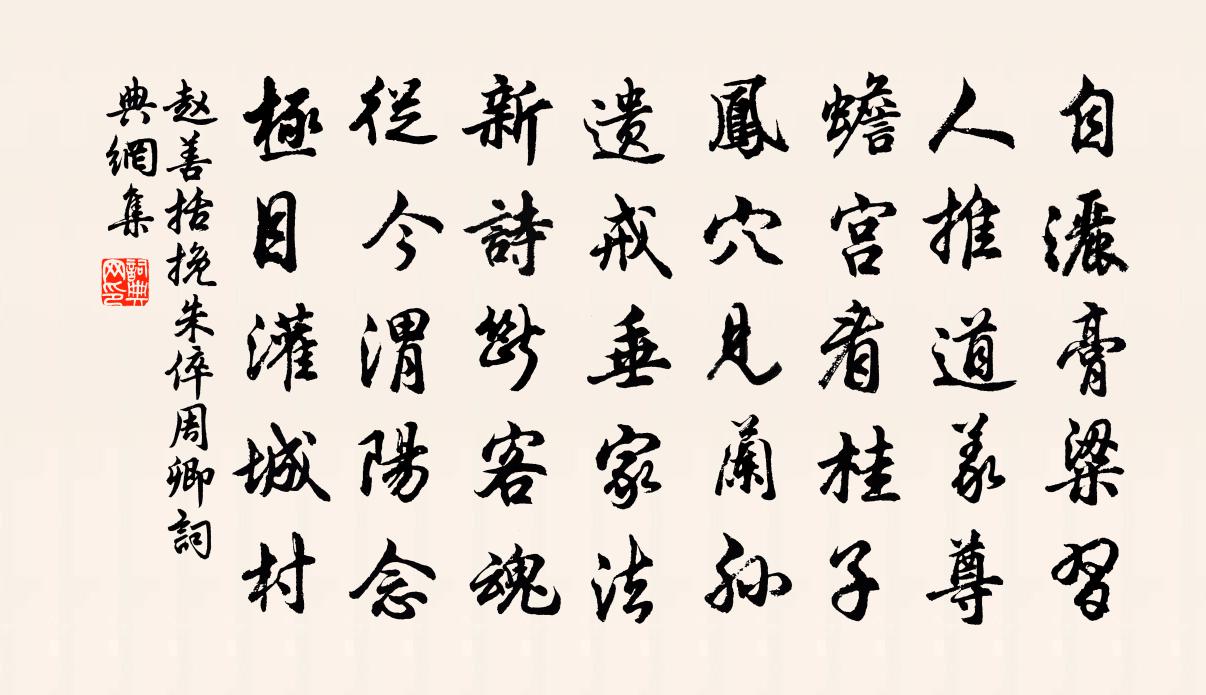 自灑膏粱習
人推道義尊
蟾宮看桂子
鳳穴見蘭孫
遺戒垂家法
新詩斷客魂
從今渭陽念
極目灌城村
赵善括挽朱倅周卿詞
典網集
詞典網印